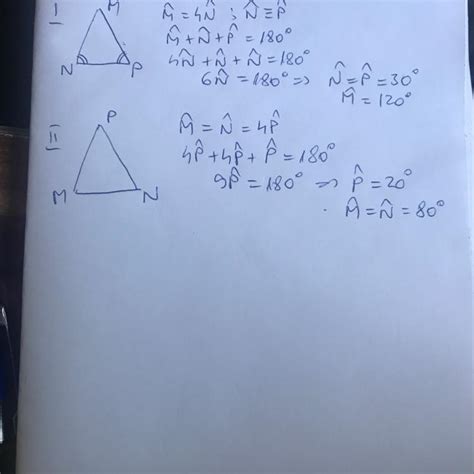 I
M
N
P
M̂ = 4N̂ ; N̂ ≡ P̂
M̂ + N̂ + P̂ = 180°
4N̂ + N̂ + N̂ = 180°
6N̂ = 180° => N̂ = P̂ = 30°
M̂ = 120°
II
P
M
N
M̂ = N̂ = 4P̂
4P̂ + 4P̂ + P̂ = 180°
9P̂ = 180° => P̂ = 20°
M̂ = N̂ = 80°